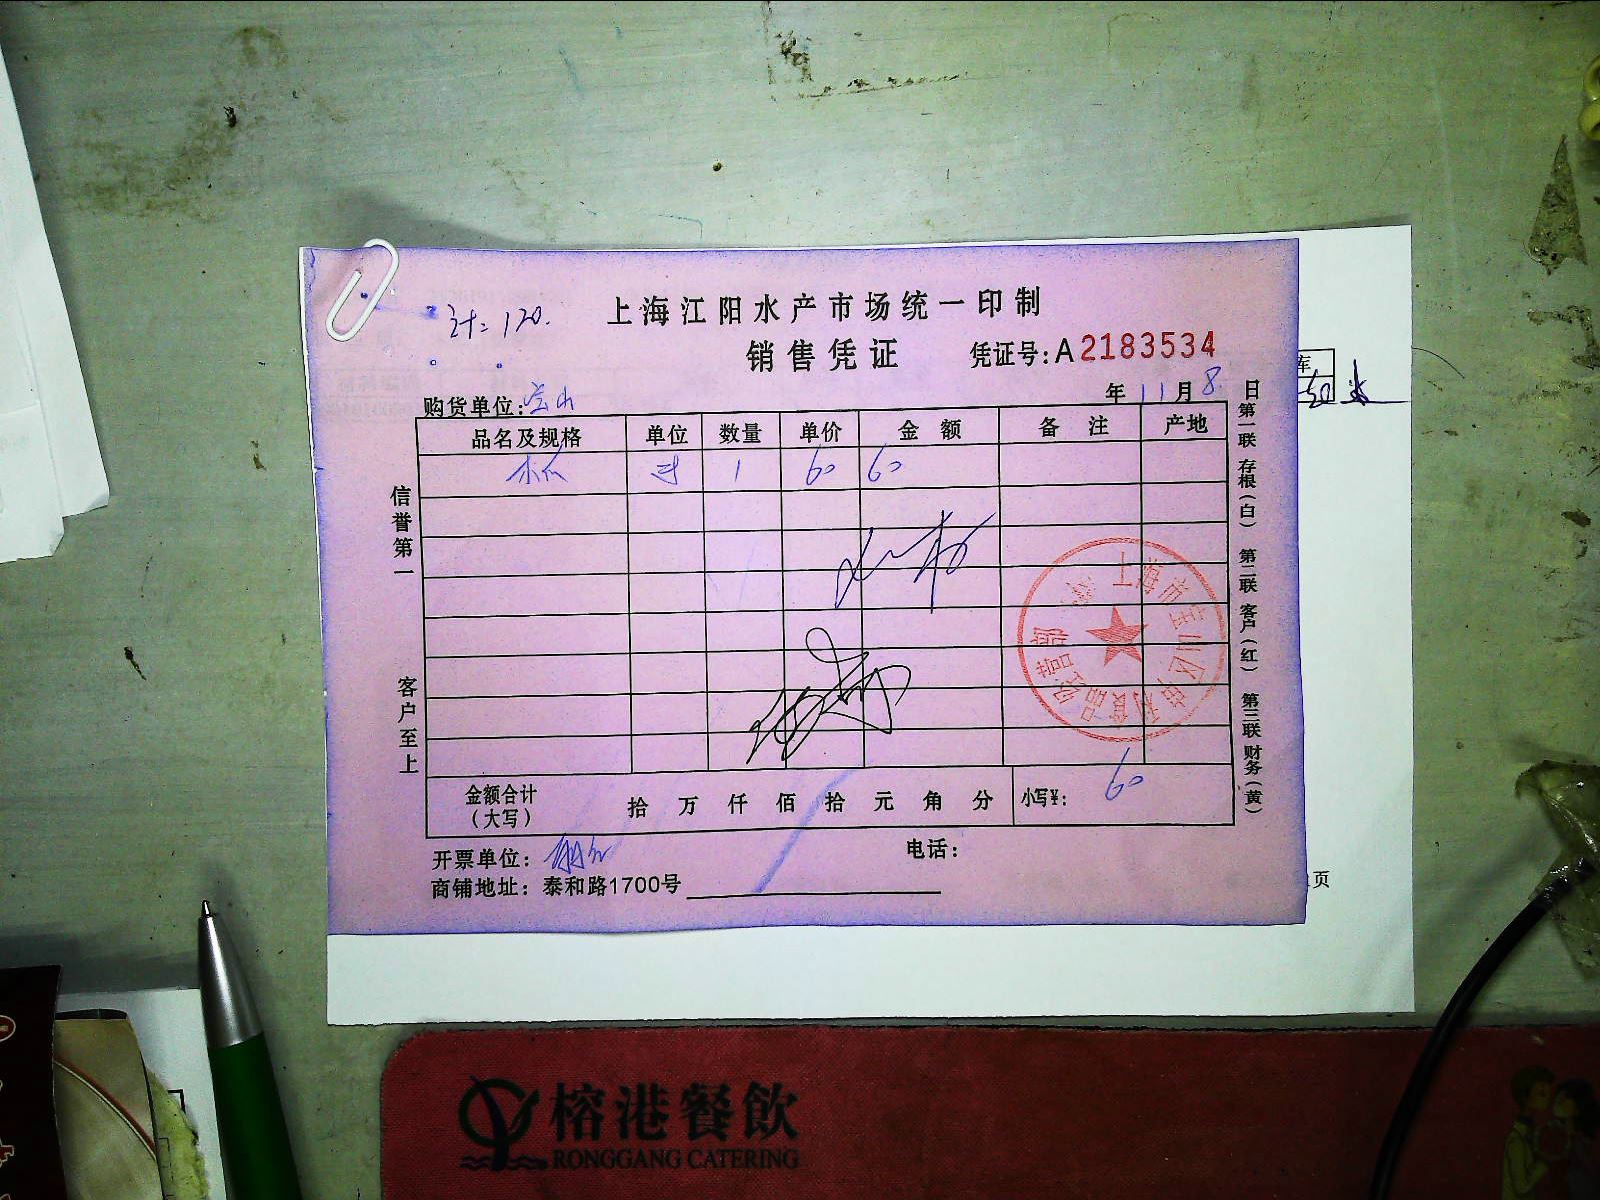 计=120.
上海江阳水产市场统一印制
销售凭证
凭证号:A2183534
购货单位:宝山
年11月8日
品名及规格 单位 数量 单价 金额 备注 产地
木瓜 1 60 60
信誉第一
客户至上
第一联 存根(白) 第二联 客户(红) 第三联 财务(黄)
上海市宝山区 食品经营部
金额合计(大写) 拾 万 仟 佰 拾 元 角 分 小写¥: 60
开票单位:
电话:
商铺地址:泰和路1700号
库
页
榕港餐飲
RONGGANG CATERING